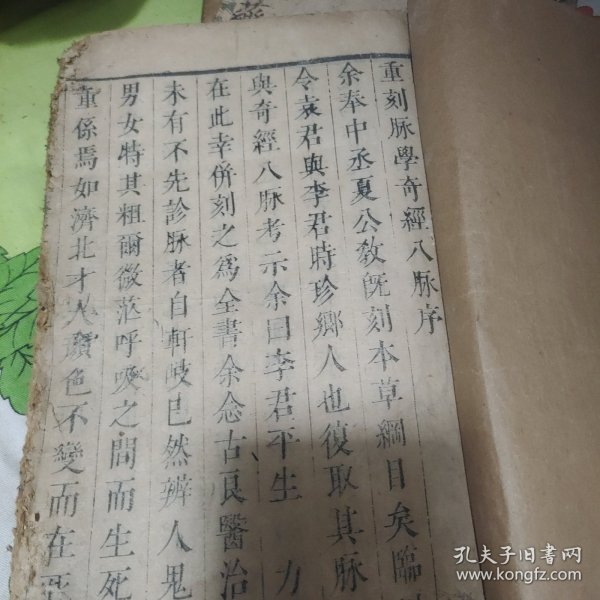 重刻脉學奇經八脉序
余奉中丞夏公敎旣刻本草綱目矣臨
令袁君與李君時珍鄉人也復取其脉
與奇經八脉考示余曰李君平生 力
在此幸併刻之爲全書余念古良醫治
未有不先診脉者自軒岐已然辨人鬼
男女特其粗爾微茫呼吸之間而生死
重係焉如濟北才人顔色不變而在死
孔夫子旧书网
www.kongfz.com